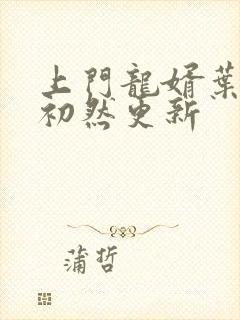 上門龍婿葉
初然更新
蒲哲